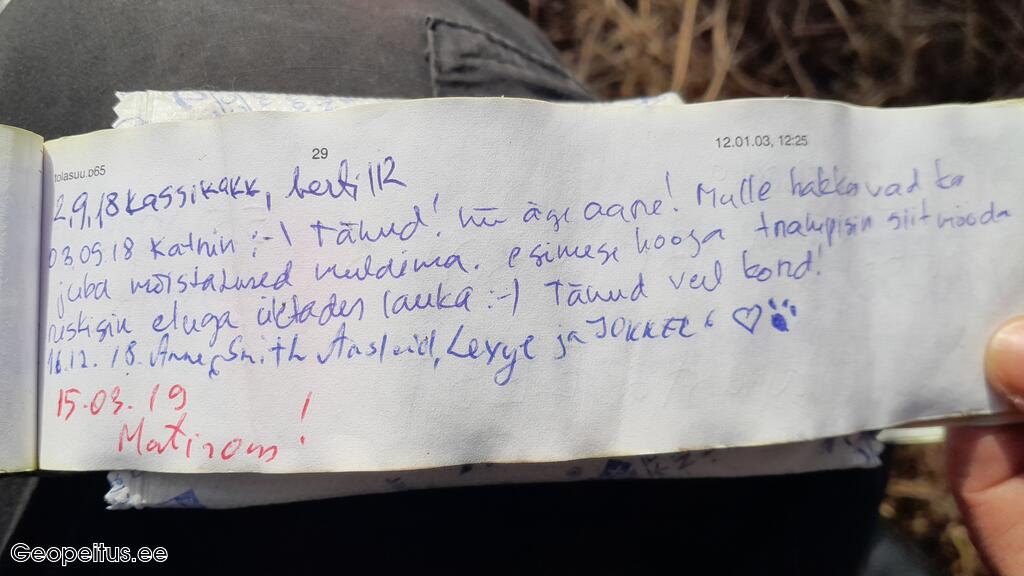 tolasuu.p65 29 12.01.03, 12:25
2.9.18 kassikakk, bertil12
03.09.18 Katrin :-) Tänud! nii äge aare! Mulle hakkavad ka
juba mõistatused meeldima. esimese hooga siit mööda
eluga lauka :-) Tänud veel kord!
16.12.18. Anne, Smith ja JOKKER
15.03.19
!
Geopeitus.ee